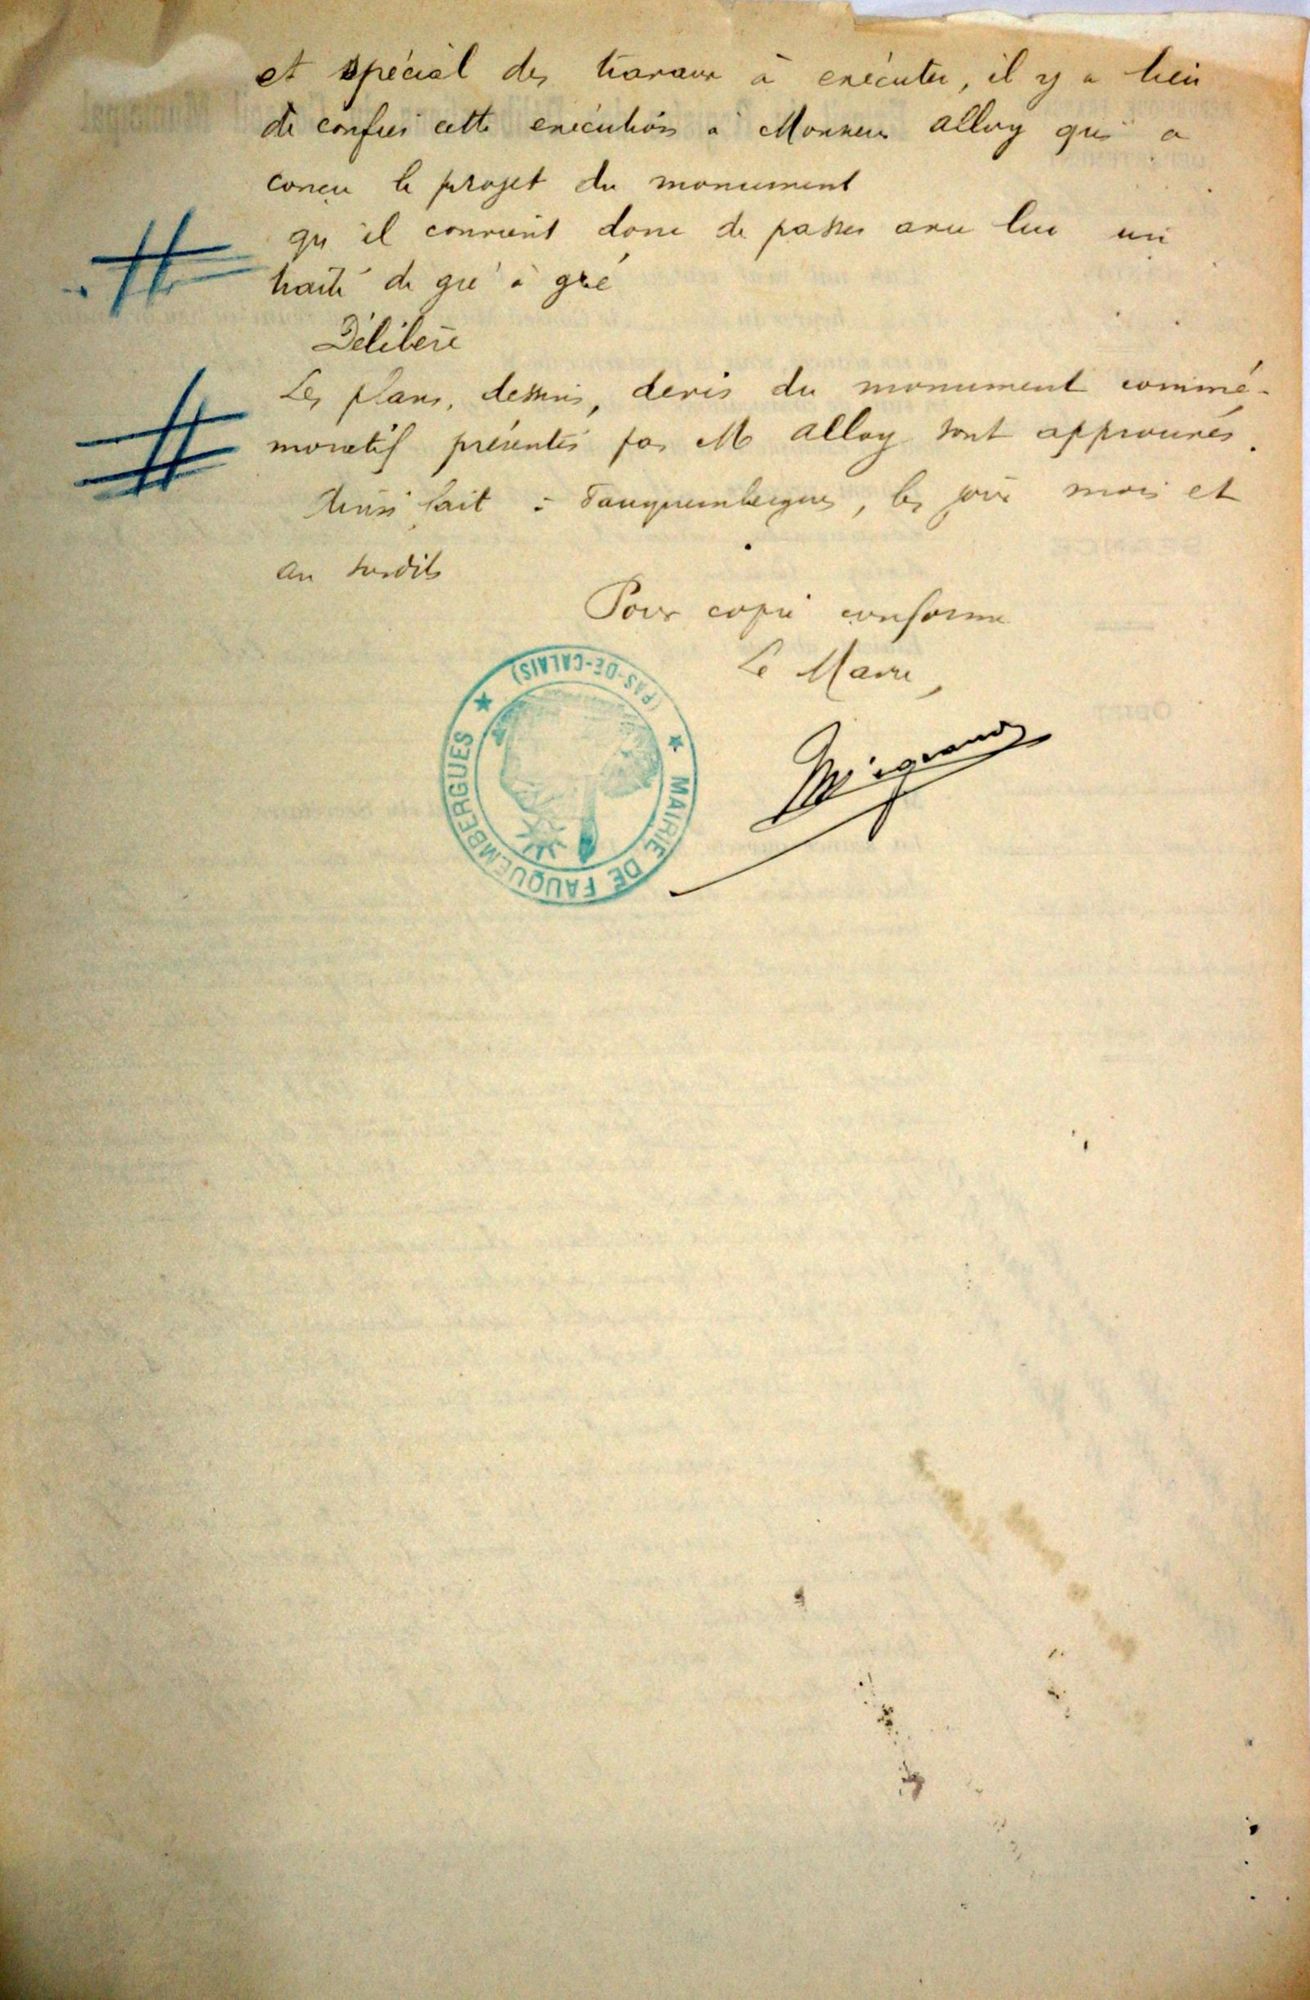 et spécial des travaux à exécuter, il y a lieu
de confier cette exécution à Monsieur Alloy qui a
conçu le projet du monument
qu'il convient donc de passer avec lui un
traité de gré à gré
Délibère
Les plans, dessins, devis du monument commé-
moratif présentés par M Alloy sont approuvés.
Ainsi fait à Fauquembergues, les jour mois et
an susdits
Pour copie conforme
Le Maire,
Mignand
MAIRIE DE FAUQUEMBERGUES
(PAS-DE-CALAIS)